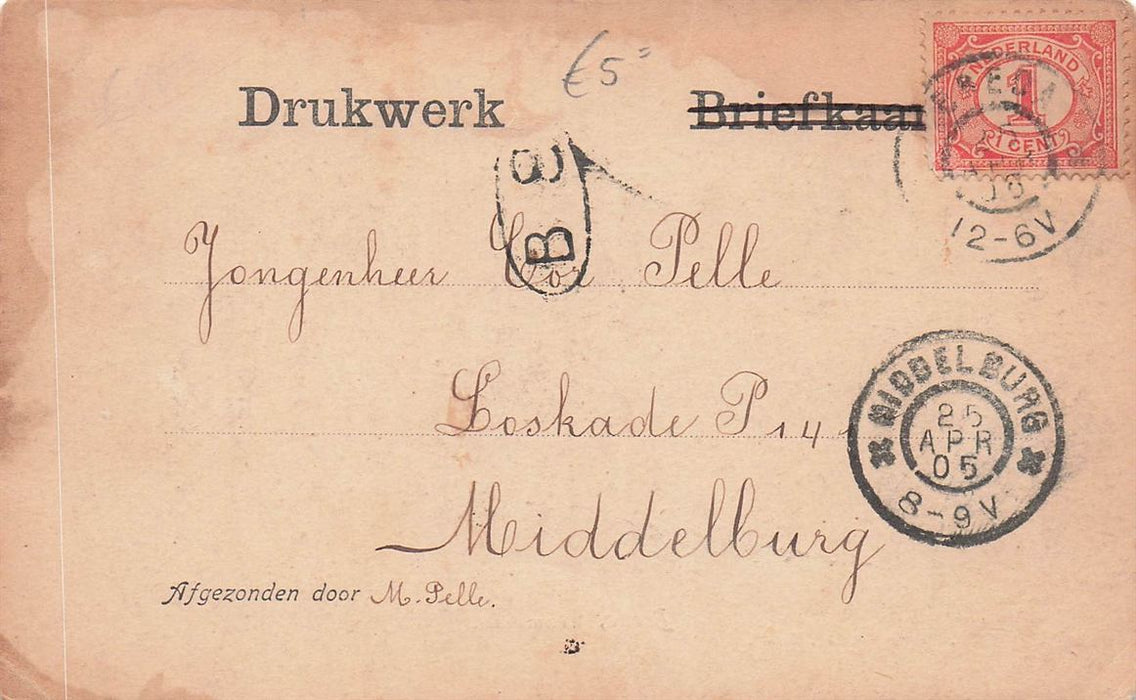 €5=
Drukwerk Briefkaar
NEDERLAND
1
1 CENT
12-6V
B
Jongenheer Cor Pelle
Loskade P 14
Middelburg
MIDDELBURG
25
APR
05
8-9V
Afgezonden door M. Pelle.